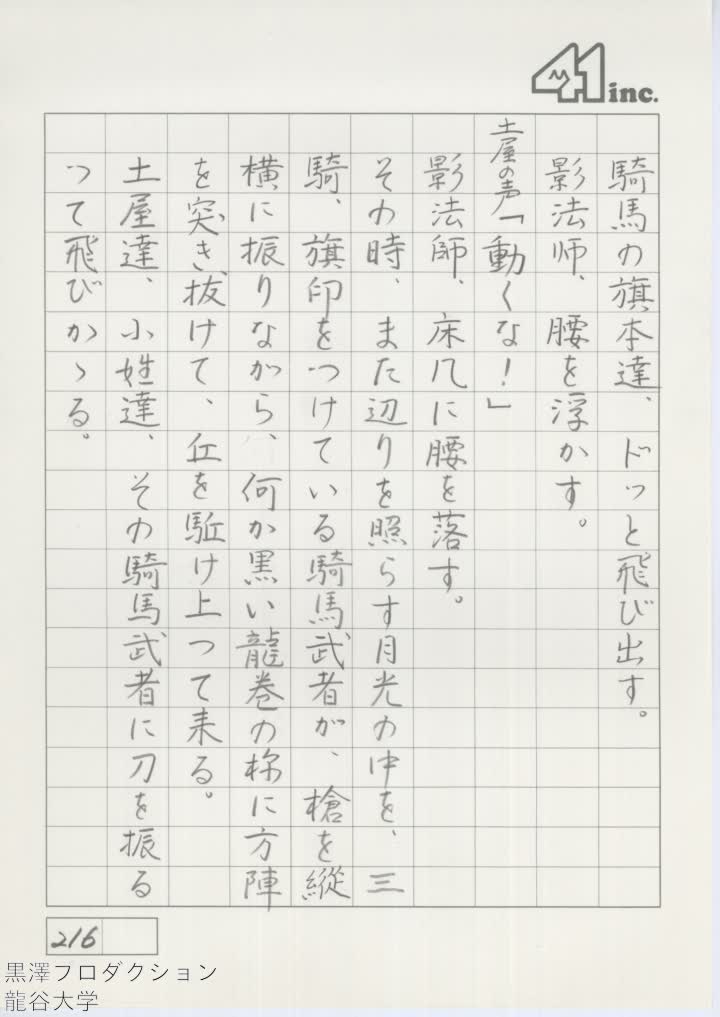 41 inc.
騎馬の旗本達、ドッと飛び出す。
影法师、腰を浮かす。
土屋の声「動くな！」
影法師、床几に腰を落す。
その時、また辺りを照らす月光の中を、三
騎、旗印をつけている騎馬武者が、槍を縦
横に振りながら、何か黒い龍巻の様に方陣
を突き抜けて、丘を駈け上って来る。
土屋達、小姓達、その騎馬武者に刀を振る
って飛びかゝる。
216
黒澤プロダクション
龍谷大学